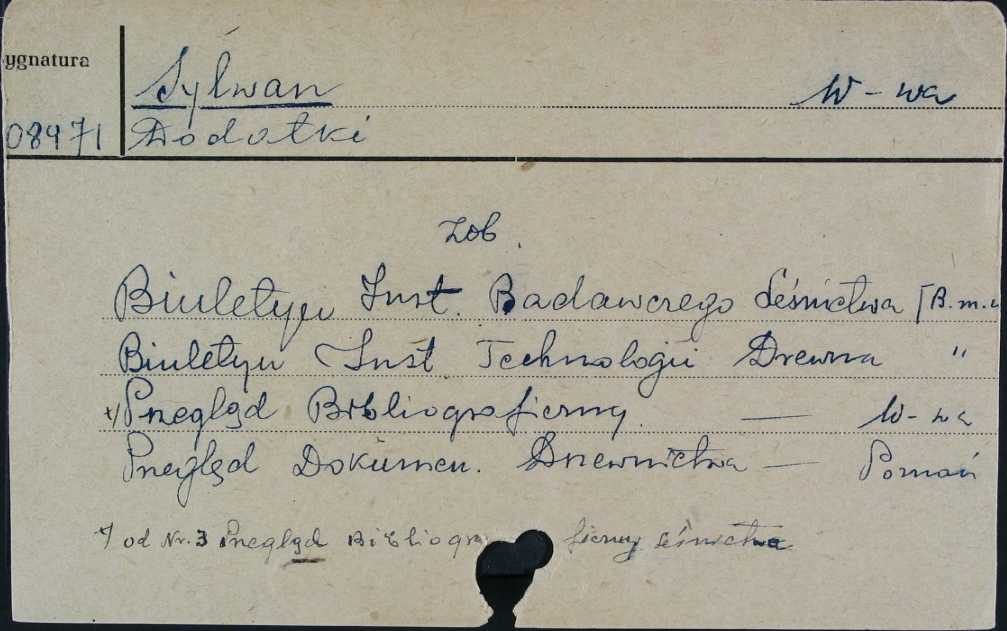 ygnatura
Sylwan W-wa
08471 Dodatki
zob.
Biuletyn Inst. Badawczego Leśnictwa [B.m.w
Biuletyn Inst. Technologii Drewna "
x/ Przegląd Bibliograficzny — W-wa
Przegląd Dokumen. Drzewnictwa — Poznań
x/ od Nr. 3 Przegląd Bibliograficzny Leśnictwa